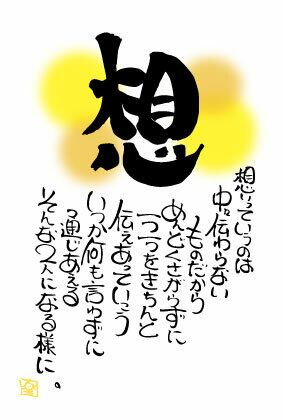 想
想いっていうのは
中々伝わらない
ものだから
めんどくさがらずに
一つ一つをきちんと
伝えあっていこう
いつか何も言わずに
通じあえる
そんな2人になる様に。